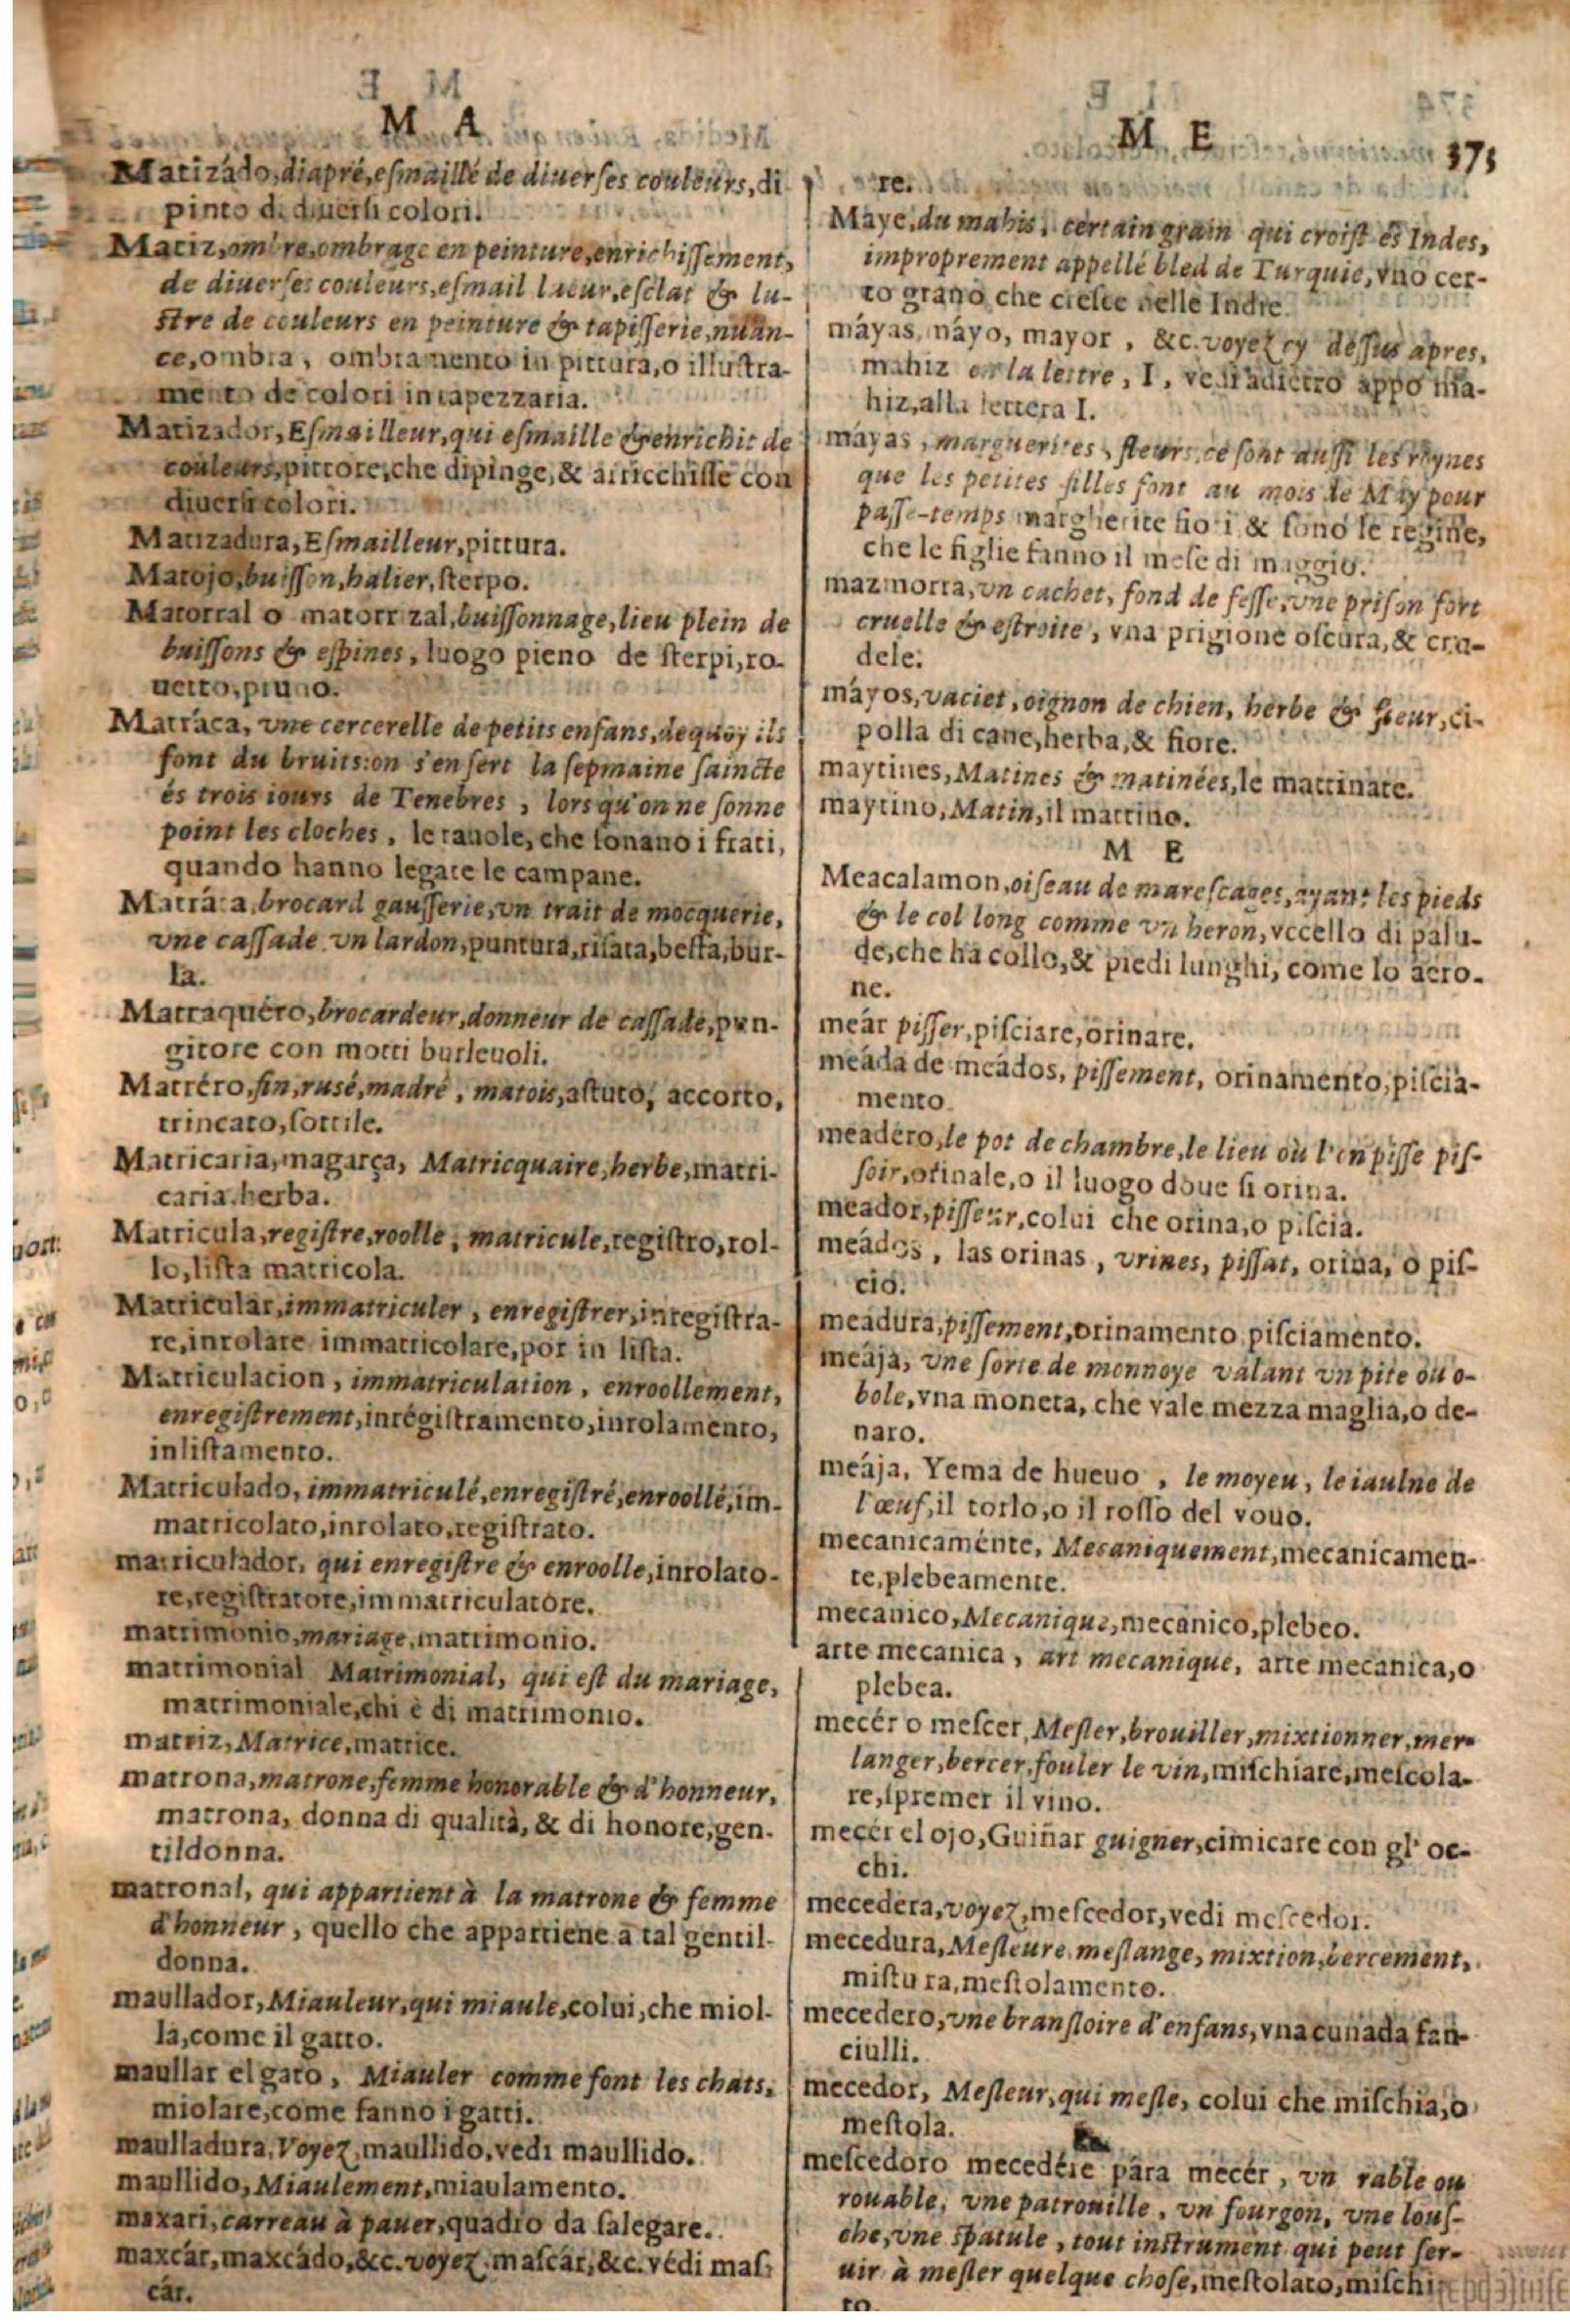 M A
Matizádo, diapré, esmaillé de diuerses couleurs, di
pinto di diuersi colori.
Matiz, ombre, ombrage en peinture, enrichissement,
de diuerses couleurs, esmail lueur, esclat & lu-
stre de couleurs en peinture & tapisserie, nuan-
ce, ombra, ombramento in pittura, o illustra-
mento de colori in tapezzaria.
Matizador, Esmailleur, qui esmaille & enrichit de
couleurs, pittore, che dipinge, & arricchisse con
diuersi colori.
Matizadura, Esmailleur, pittura.
Matojo, buisson, halier, sterpo.
Matorral o matorrizal, buissonnage, lieu plein de
buissons & espines, luogo pieno de sterpi, ro-
uetto, pruno.
Matráca, vne cercerelle de petits enfans, dequoy ils
font du bruits: on s'en sert la sepmaine saincte
és trois iours de Tenebres, lors qu'on ne sonne
point les cloches, le tauole, che sonano i frati,
quando hanno legate le campane.
Matráca, brocard gausserie, vn trait de mocquerie,
vne cassade vn lardon, puntura, risata, beffa, bur-
la.
Matraquéro, brocardeur, donneur de cassade, pun-
gitore con motti burleuoli.
Matréro, fin, rusé, madré, matois, astuto, accorto,
trincato, sottile.
Matricaria, magarça, Matricquaire, herbe, matri-
caria. herba.
Matricula, registre, roolle, matricule, registro, rol-
lo, lista matricola.
Matricular, immatriculer, enregistrer, inregistra-
re, inrolare immatricolare, por in lista.
Matriculacion, immatriculation, enroollement,
enregistrement, inregistramento, inrolamento,
inlistamento.
Matriculado, immatriculé, enregistré, enroollé, im-
matricolato, inrolato, registrato.
matriculador, qui enregistre & enroolle, inrolato-
re, registratore, immatriculatore.
matrimonio, mariage, matrimonio.
matrimonial Matrimonial, qui est du mariage,
matrimoniale, chi è di matrimonio.
matriz, Matrice, matrice.
matrona, matrone, femme honorable & d'honneur,
matrona, donna di qualità, & di honore, gen-
tildonna.
matronal, qui appartient à la matrone & femme
d'honneur, quello che appartiene a tal gentil-
donna.
maullador, Miauleur, qui miaule, colui, che miol-
la, come il gatto.
maullar el gato, Miauler comme font les chats,
miolare, come fanno i gatti.
maulladura, Voyez, maullido, vedi maullido.
maullido, Miaulement, miaulamento.
maxari, carreau à pauer, quadro da salegare.
maxcár, maxcádo, &c. voyez mascár, &c. vedi mas-
cár.
M E 375
re.
Maye, du mahis, certain grain qui croist és Indes,
improprement appellé bled de Turquie, vno cer-
to grano che cresce nelle Indie.
máyas, máyo, mayor, &c. voyez cy dessus apres,
mahiz en la lettre, I, vedi adietro appo ma-
hiz, alla lettera I.
máyas, marguerites, fleurs, ce sont aussi les roynes
que les petites filles font au mois de May pour
passe-temps margherite fiori & sono le regine,
che le figlie fanno il mese di maggio.
mazmorra, vn cachet, fond de fesse, vne prison fort
cruelle & estroite, vna prigione oscura, & cru-
dele.
máyos, vaciet, oignon de chien, herbe & fleur, ci-
polla di cane, herba, & fiore.
maytines, Matines & matinées, le mattinate.
maytino, Matin, il mattino.
M E
Meacalamon, oiseau de marescages, ayant les pieds
& le col long comme vn heron, vccello di palu-
de, che ha collo, & piedi lunghi, come lo aero-
ne.
meár pisser, pisciare, orinare.
meáda de meádos, pissement, orinamento, piscia-
mento.
meadéro, le pot de chambre, le lieu où l'on pisse pis-
soir, orinale, o il luogo doue si orina.
meador, pisseur, colui che orina, o piscia.
meádos, las orinas, vrines, pissat, orina, o pis-
cio.
meadura, pissement, orinamento pisciamento.
meája, vne sorte de monnoye valant vn pite ou o-
bole, vna moneta, che vale mezza maglia, o de-
naro.
meája, Yema de hueuo, le moyeu, le iaulne de
l'œuf, il torlo, o il rosso del vouo.
mecanicaménte, Mecaniquement, mecanicamen-
te, plebeamente.
mecanico, Mecanique, mecánico, plebeo.
arte mecanica, art mecanique, arte mecanica, o
plebea.
mecér o mescer, Mesler, brouiller, mixtionner, mer-
langer, bercer, fouler le vin, mischiare, mescola-
re, spremer il vino.
mecér el ojo, Guiñar guigner, cimicare con gl' oc-
chi.
mecedera, voyez, mescedor, vedi mescedor.
mecedura, Mesleure meslange, mixtion, bercement,
mistura, mestolamento.
mecedero, vne bransloire d'enfans, vna cunada fan-
ciulli.
mecedor, Mesleur, qui mesle, colui che mischia, o
mestola.
mescedoro mecedére pára mecér, vn rable ou
rouable, vne patrouille, vn fourgon, vne lous-
che, vne spatule, tout instrument qui peut ser-
uir à mesler quelque chose, mestolato, mischi
to.